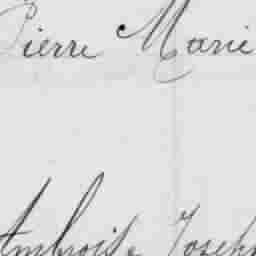 Pierre Marie
Ambroise Joseph